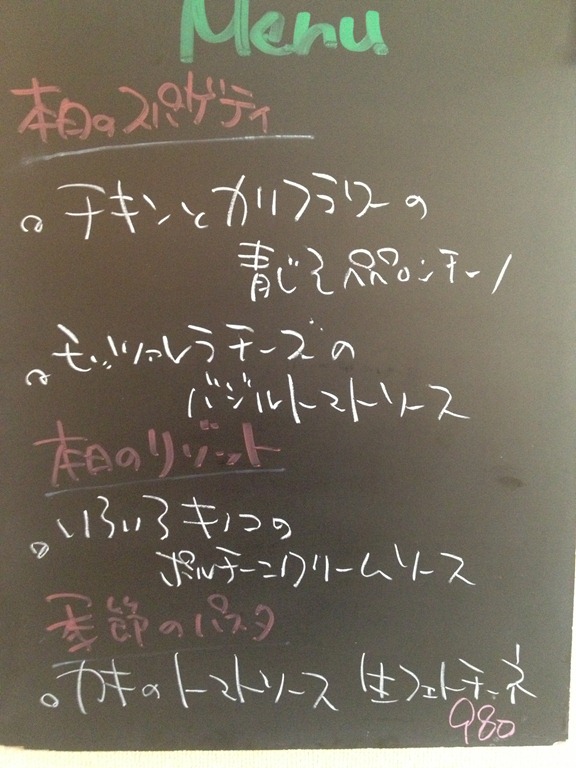 Menu
本日のスパゲティ
チキンとカリフラワーの
青じそペペロンチーノ
モッツァレラチーズの
バジルトマトソース
本日のリゾット
いろいろキノコの
ポルチーニクリームソース
季節のパスタ
カキのトマトソース 生フェトチーネ
980